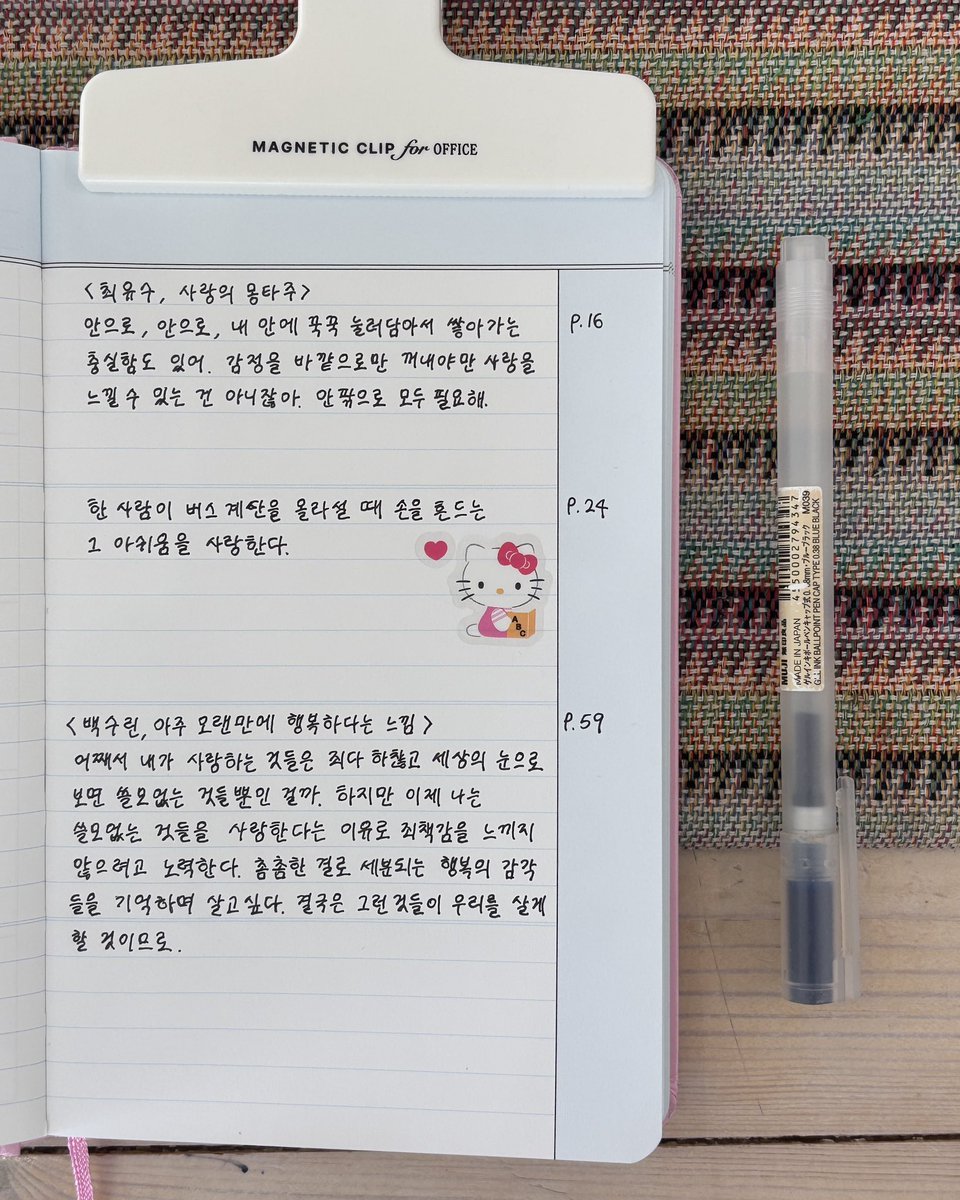 MAGNETIC CLIP for OFFICE
<최유수, 사랑의 몽타주>
안으로, 안으로, 내 안에 꾹꾹 눌러담아서 쌓아가는
P.16
충실함도 있어. 감정을 바깥으로만 꺼내야만 사랑을
느낄 수 있는 건 아니잖아. 안팎으로 모두 필요해.
한 사람이 버스 계단을 올라설 때 손을 흔드는
P.24
그 아쉬움을 사랑한다.
A
B
C
<백수린, 아주 오랜만에 행복하다는 느낌>
P.59
어째서 내가 사랑하는 것들은 죄다 하찮고 세상의 눈으로
보면 쓸모없는 것들뿐인 걸까. 하지만 이제 나는
쓸모없는 것들을 사랑한다는 이유로 죄책감을 느끼지
않으려고 노력한다. 촘촘한 결로 세분되는 행복의 감각
들을 기억하며 살고싶다. 결국은 그런것들이 우리를 살게
할 것이므로.
MUJI 無印良品
MADE IN JAPAN 4 550002 794347
ゲルインキボールペンキャップ式 0.38mm・ブルーブラック M039
GEL INK BALLPOINT PEN CAP TYPE 0.38 BLUE BLACK